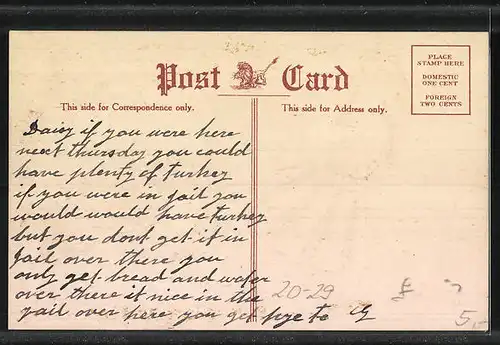 Post Card
This side for Correspondence only.
This side for Address only.
PLACE
STAMP HERE
DOMESTIC
ONE CENT
FOREIGN
TWO CENTS
Daisy if you were here
next thursday you could
have plenty of turkey
if you were in jail you
would would have turkey
but you dont get it in
jail over there you
only get bread and water
over there it nice in the
jail over here you get pye to
20-29
5